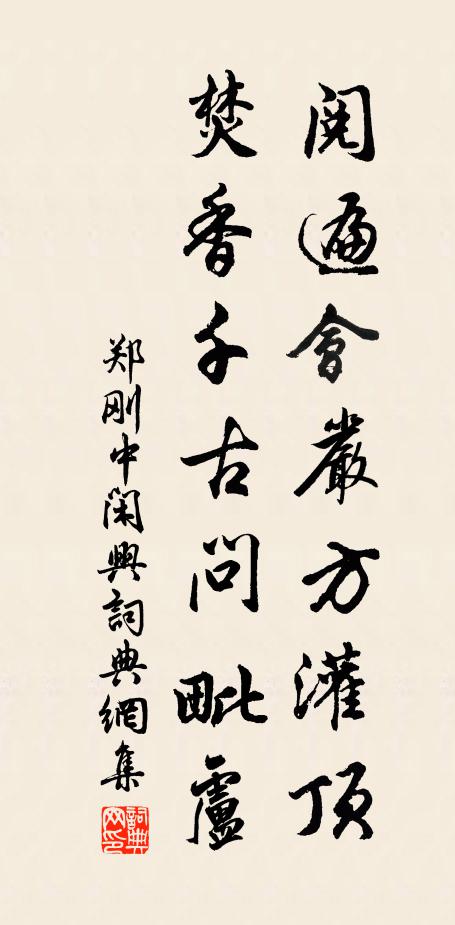 阅遍會嚴方灌顶
焚香千古問毗盧
郑刚中闲興詞典網集
詞典网印